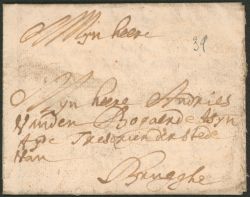 Mijn heere
38
Mijn heere Andries
Vanden Bogaerde
Tresorier der stede
Van
Brugghe